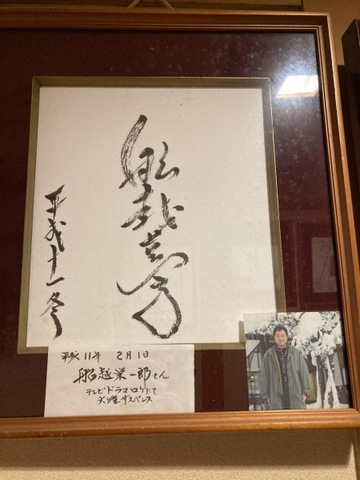 平成十一 冬
平成 11年 2月1日
船越栄一郎さん
テレビドラマロケにて
火曜サスペンス